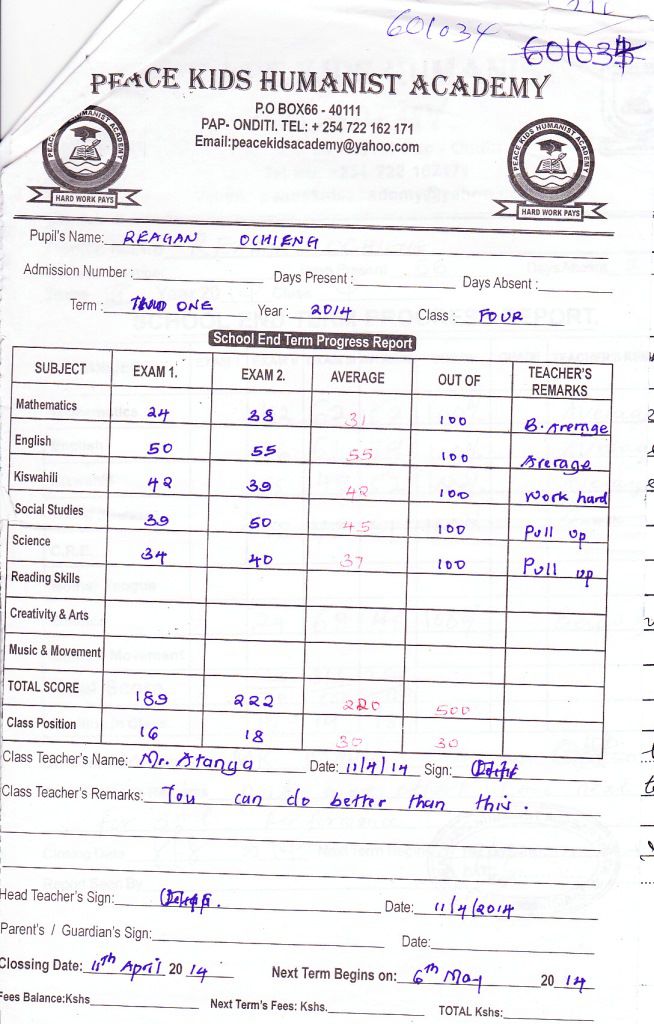 601034 601034
PEACE KIDS HUMANIST ACADEMY
P.O BOX66 - 40111
PAP- ONDITI. TEL: + 254 722 162 171
Email:peacekidsacademy@yahoo.com
PEACE KIDS HUMANIST ACADEMY
HARD WORK PAYS
PEACE KIDS HUMANIST ACADEMY
HARD WORK PAYS
Pupil's Name: REAGAN OCHIENG
Admission Number : Days Present : Days Absent :
Term : ONE Year : 2014 Class : FOUR
School End Term Progress Report
SUBJECT EXAM 1. EXAM 2. AVERAGE OUT OF TEACHER'S REMARKS
Mathematics 24 38 31 100 B. Average
English 50 55 55 100 Average
Kiswahili 42 39 42 100 Work hard
Social Studies 39 50 45 100 Pull up
Science 34 40 37 100 Pull up
Reading Skills
Creativity & Arts
Music & Movement
TOTAL SCORE 189 222 220 500
Class Position 16 18 30 30
Class Teacher's Name: Mr. Atanga Date: 11/4/14 Sign:
Class Teacher's Remarks: You can do better than this.
Head Teacher's Sign: Date: 11/4/2014
Parent's / Guardian's Sign: Date:
Clossing Date: 11th April 2014 Next Term Begins on: 6th May 2014
Fees Balance:Kshs Next Term's Fees: Kshs. TOTAL Kshs: